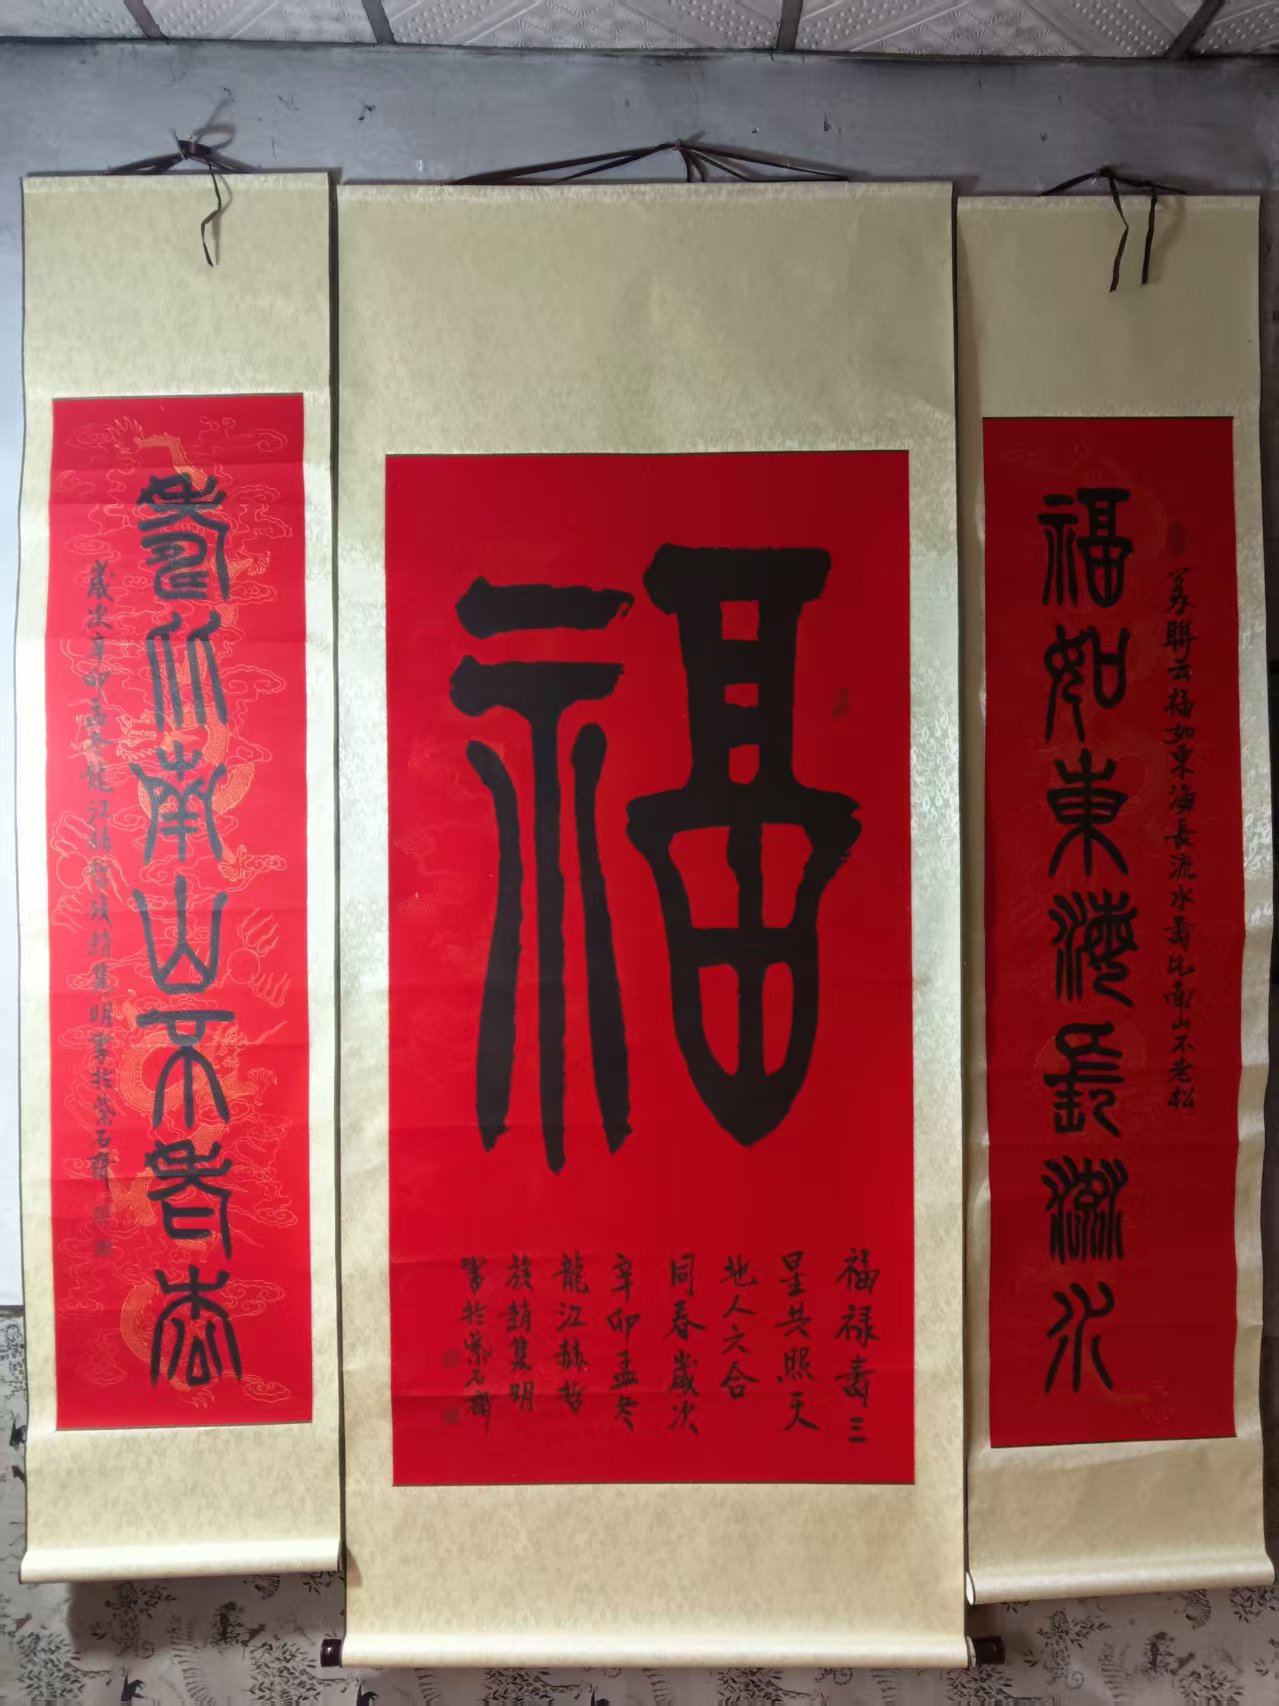 福如東海長流水
篆聯云福如東海長流水壽比南山不老松
福
福祿壽三
星共照天
地人六合
同春歲次
辛卯孟冬
龍江赫哲
族趙集明
書於紫石齋
壽比南山不老松
歲次辛卯孟冬龍江赫哲族趙集明書於紫石齋